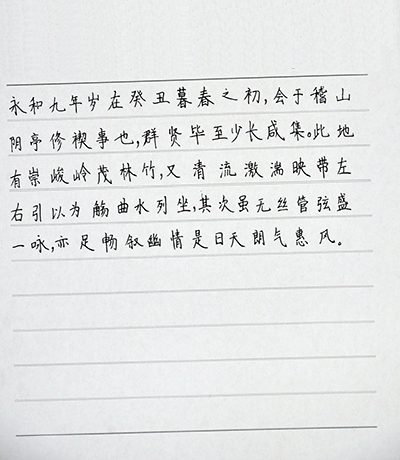 永和九年岁在癸丑暮春之初,会于稽山
阴亭修禊事也,群贤毕至少长咸集。此地
有崇峻岭茂林竹,又清流激湍映带左
右引以为觞曲水列坐,其次虽无丝管弦盛
一咏,亦足畅叙幽情是日天朗气惠风。